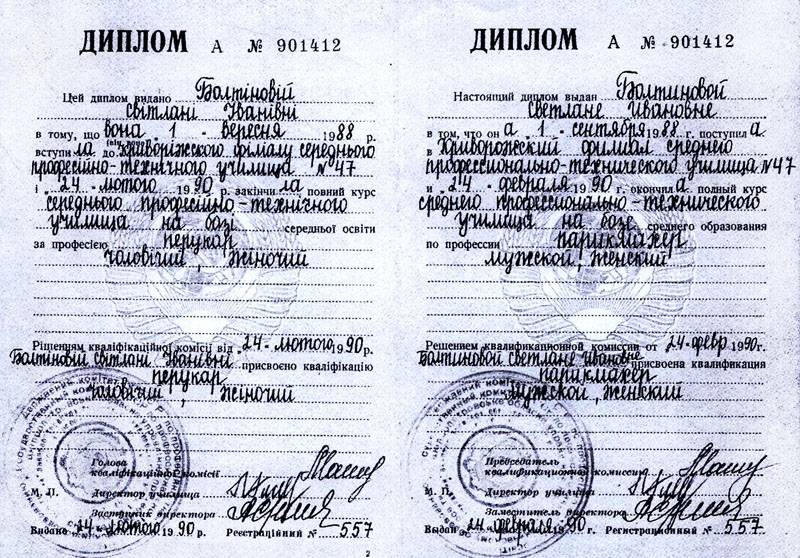 ДИПЛОМ А № 901412
Цей диплом видано Болтіновій
Світлані Іванівні
в тому, що вона 1 - вересня 1988 р.
(він, вона)
вступила до Криворіжского філіалу середнього
професійно-технічного училища №47
і "24 - лютого 1990 р. закінчила повний курс
середнього професійно-технічного
училища на базі середньої освіти
за професією перукар
чоловічий, жіночий
Рішенням кваліфікаційної комісії від "24 - лютого 1990 р.
Болтіновій Світлані Іванівні присвоєно кваліфікацію
перукар
чоловічий, жіночий
Голова
кваліфікаційної комісії
М. П. Директор училища
Заступник директора
Видано "24 лютого 1990 р. Реєстраційний № 557
2
ДИПЛОМ А № 901412
Настоящий диплом выдан Болтиновой
Светлане Ивановне
в том, что она 1 - сентября 1988 г. поступила
в Криворожский филиал среднего
профессионально-технического училища №47
и "24 - февраля 1990 г. окончила полный курс
среднего профессионально-технического
училища на базе среднего образования
по профессии парикмахер
мужской, женский
Решением квалификационной комиссии от "24-февр 1990г.
Болтиновой Светлане Ивановне присвоена квалификация
парикмахер
мужской, женский
Председатель
квалификационной комиссии
М. П. Директор училища
Заместитель директора
Выдан "24 февраля 1990 г. Регистрационный № 557